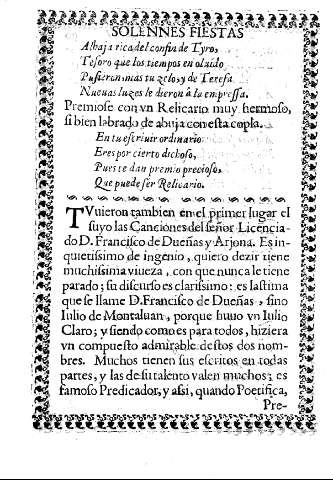 SOLENNES FIESTAS
Alhaja rica del confin de Tyro,
Tesoro que los tiempos en oluido
Pusieron: mas tu zelo, y de Teresa
Nueuas luzes le dieron à tu empressa.
Premiose con vn Relicario muy hermoso,
si bien labrado de abuja con esta copla.
En tu escriuir ordinario
Eres por cierto dichoso,
Pues te dan premio precioso,
Que puede ser Relicario.
TVuieron tambien en el primer lugar el
suyo las Canciones del señor Licencia-
do D. Francisco de Dueñas y Arjona. Es in-
quietissimo de ingenio, quiero dezir tiene
muchissima viueza, con que nunca le tiene
parado; su discurso es clarissimo: es lastima
que se llame D. Francisco de Dueñas, sino
Iulio de Montaluan, porque huuo vn Iulio
Claro; y siendo como es para todos, hiziera
vn compuesto admirable destos dos nom-
bres. Muchos tienen sus escritos en todas
partes, y las de su talento valen muchos; es
famoso Predicador, y assi, quando Poetifica,
Pre-